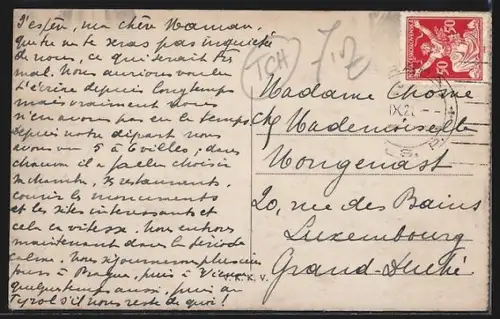 J'espère, ma chère Maman,
que tu ne te seras pas inquiétée
de nous, ce qui serait très
mal. Nous aurions voulu
t'écrire depuis longtemps
mais vraiment nous
n'en avons pas eu le temps
depuis notre départ nous
avons vu 5 à 6 villes; dans
chacune il a fallu choisir
restaurants,
courir les monuments
et les sites intéressants et
cela en vitesse. Nous entrons
maintenant dans la période
calme. Nous séjournerons plusieurs
jours à Prague, puis à Vienne
quelque temps aussi, puis au
Tyrol s'il nous reste de quoi!
TCH
50
50
IX.2
Madame Chomé
Chez Mademoiselle
Mongenast
20, rue des Bains
Luxembourg
Grand-Duché
V. K. K. V.